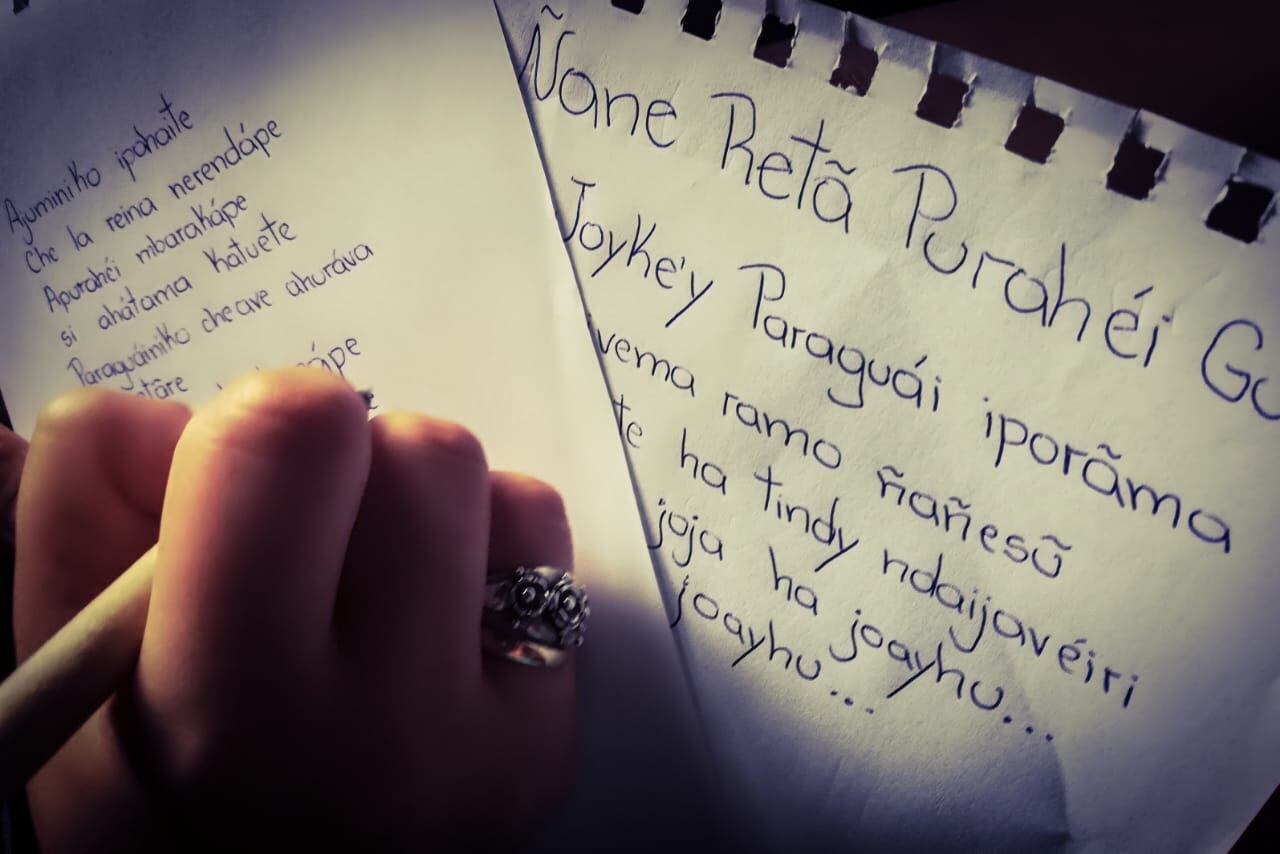 Ajuminiko ipohaite
Che la reina nerendápe
Apurahéi mbarakápe
si ahátama katuete
Paraguáiniko cheave ahuráva
Ñane Retã Purahéi
Joyke'y Paraguái iporãma
vema ramo ñañesũ
te ha tindy ndaijavéiri
joja ha joayhu...
joayhu...